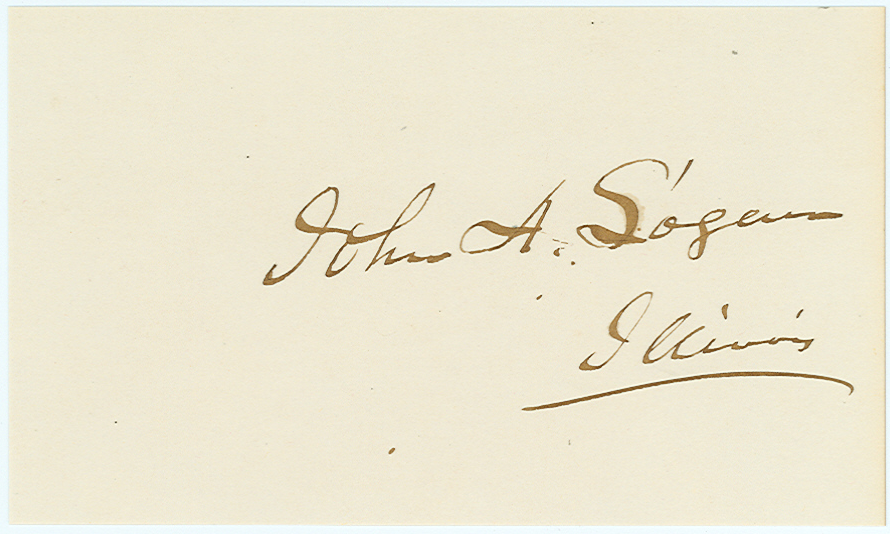 John A. Logan
Illinois